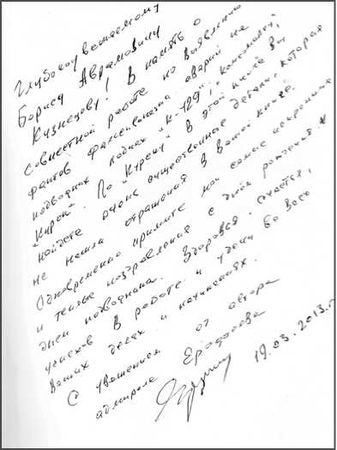 Глубоко уважаемому
Борису Аврамовичу
Кузнецову! В память о
совместной работе по выявлению
фактов фальсификации аварий на
подводных лодках "К-129", Комсомолец,
"Курск". По "Курску" в этой книге Вы
найдете очень существенные детали, которая
не нашла отражения в Вашей книге.
Одновременно примите мои самые искренние
и теплые поздравления с днем рождения и
днем подводника. Здоровья, счастья,
успехов в работе и удачи во всех
Ваших делах и начинаниях.
С уважением от автора
адмирала Ерофеева
19.03.2013 г.